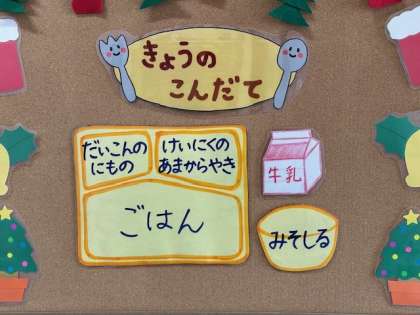 きょうの
こんだて
だいこんの
にもの
けいにくの
あまからやき
牛乳
ごはん
みそしる